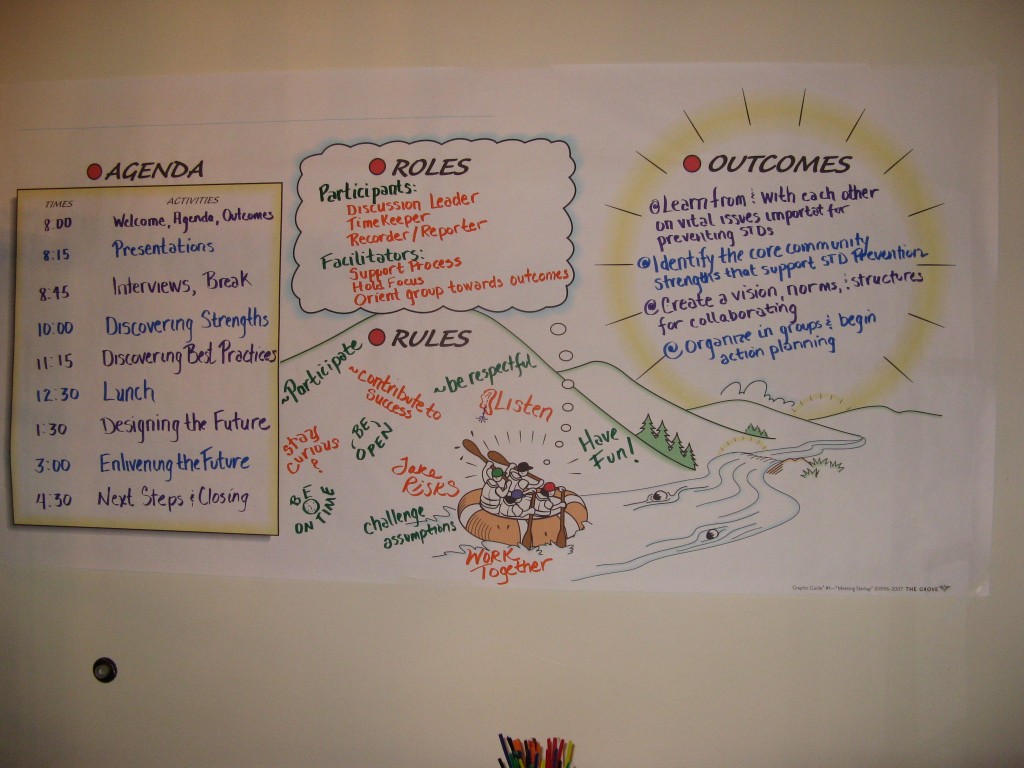 AGENDA
TIMES ACTIVITIES
8:00 Welcome, Agenda, Outcomes
8:15 Presentations
8:45 Interviews, Break
10:00 Discovering Strengths
11:15 Discovering Best Practices
12:30 Lunch
1:30 Designing the Future
3:00 Enlivening the Future
4:30 Next Steps & Closing
ROLES
Participants:
Discussion Leader
TimeKeeper
Recorder/Reporter
Facilitators:
Support Process
Hold Focus
Orient group towards outcomes
RULES
~Participate
~contribute to
Success
~be respectful
Listen
Stay
Curious
?
BE
OPEN
Have
Fun!
Take
Risks
BE
ON TIME
challenge
assumptions
WORK
Together
2 3
OUTCOMES
Learn from & with each other
on vital issues importat for
preventing STDs
Identify the core community
strengths that support STD Prevention
Create a vision, norms, & structures
for collaborating
Organize in groups & begin
action planning
Graphic Guide® #1—"Meeting Startup" ©1996-2007 THE GROVE